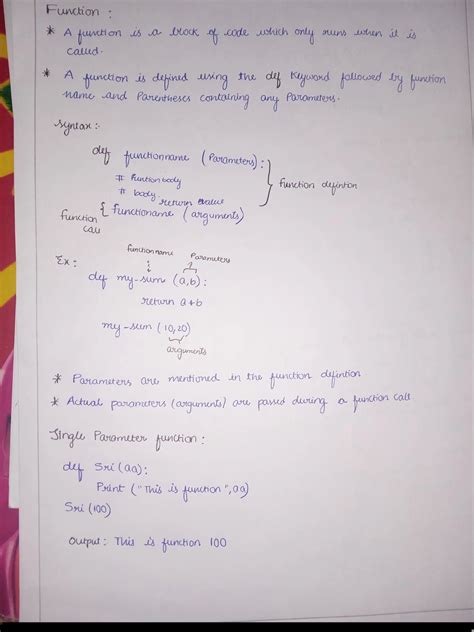 Function :
* A function is a block of code which only runs when it is
called.
* A function is defined using the def Keyword followed by function
name and Parentheses containing any Parameters.
Syntax :-
def functionname (Parameters):
# Funtionbody
# body
return value
function defintion
function call { functioname (arguments)
functionname Parameters
Ex :
def my-sum (a,b):
return a+b
my-sum (10,20)
arguments
* Parameters are mentioned in the function defintion
* Actual parameters (arguments) are passed during a function call
Single Parameter function :
def Sri(aa):
Print ("This is function",aa)
Sri(100)
Output : This is function 100